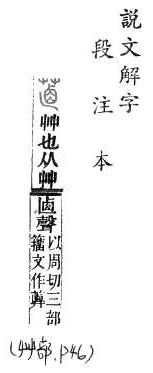 說文解字
段注本
艸也从艸聲
以周切三部
籒文作
(艸部, P46)